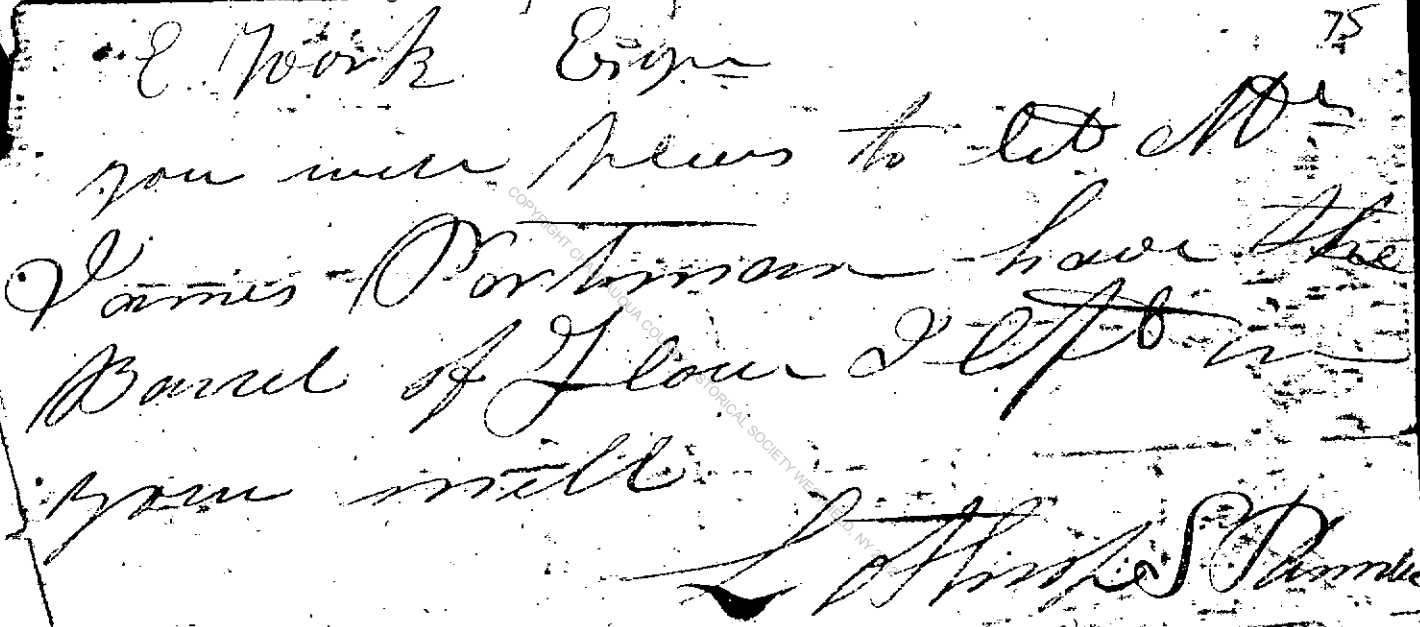 75
E Work Esqr
you will pleas to let Mr
James Portman have the
Barrel of Flour I left in
your mill
Lothrop S
COPYRIGHT CHAUTAUQUA COUNTY HISTORICAL SOCIETY WESTFIELD, NY